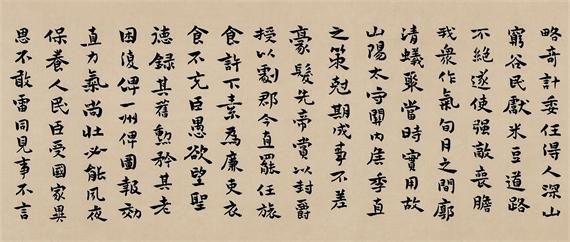 略奇計委任得人深山
窮谷民獻米豆道路
不絕遂使强敵喪膽
我衆作氣旬月之間廓
清蟻聚當時實用故
山陽太守關內侯季直
之策剋期成事不差
豪髮先帝賞以封爵
授以劇郡今直罷任旅
食許下素為廉吏衣
食不充臣愚欲望聖
德錄其舊勳矜其老
困復俾一州俾圖報效
直力氣尚壯必能夙夜
保養人民臣受國家異
恩不敢雷同見事不言